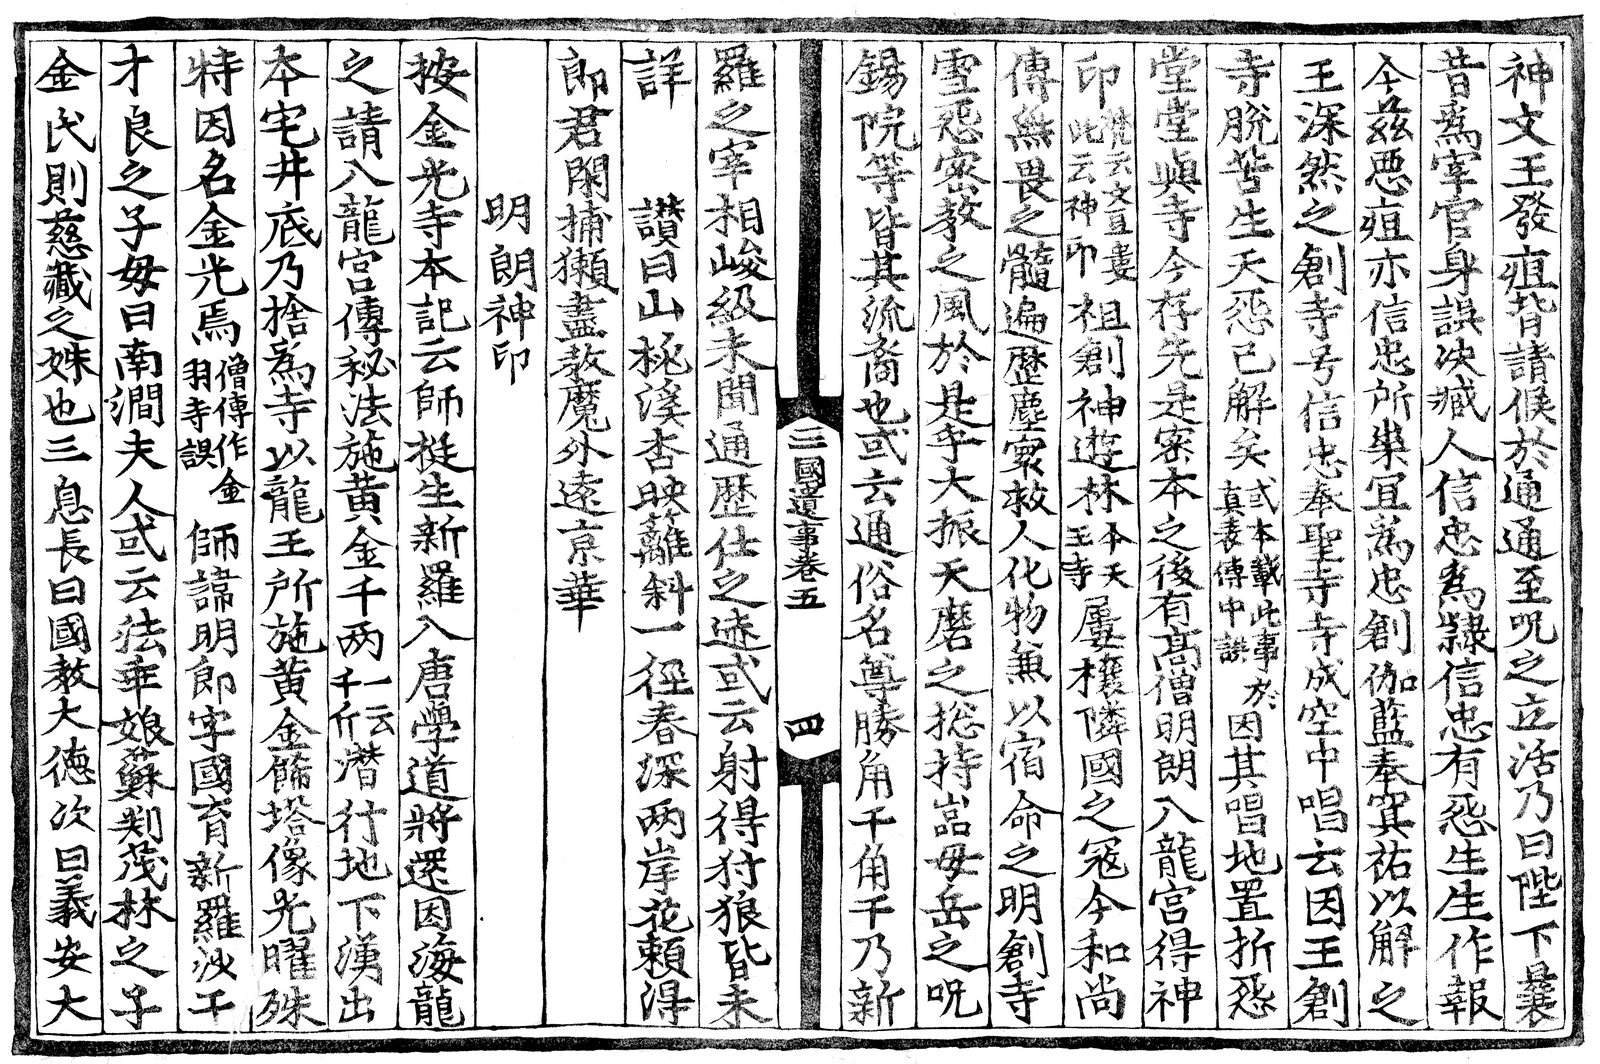 神文王發疽背請候於通通至呪之立活乃曰陛下曩
昔爲宰官身誤决臧人信忠爲隸信忠有怨生生作報
今玆惡疽亦信忠所祟宜爲忠創伽藍奉冥祐以解之
王深然之創寺号信忠奉聖寺寺成空中唱云因王創
寺脫苦生天怨已解矣或本載此事於真表傳中誤因其唱地置折怨
堂堂與寺今存先是密本之後有高僧明朗入龍宮得神
印梵云文豆婁此云神印祖創神遊林今天王寺屢禳隣國之寇今和尚
傳無畏之髓遍歷塵寰救人化物兼以宿命之明創寺
雪怨密教之風於是乎大振天磨之総持嵓母岳之呪
錫院等皆其流裔也或云通俗名尊勝角干角干乃新
三國遺事卷五
四
羅之宰相峻級未聞通歷仕之迹或云射得犲狼皆未
詳 讚曰山桃溪杏映籬斜一徑春深两岸花頼淂
郎君閑捕獺盡敎魔外遠京華
明朗神印
按金光寺本記云師挺生新羅入唐學道將還因海龍
之請入龍宮傳秘法施黄金千两一云千斤潜行地下湧出
本宅井底乃捨爲寺以龍王所施黄金餙塔像光曜殊
特因名金光焉僧傳作金羽寺誤師諱明郎字國育新羅沙干
才良之子母曰南澗夫人或云法乖娘蘇判茂林之子
金氏則慈藏之妹也三息長曰國敎大德次曰義安大